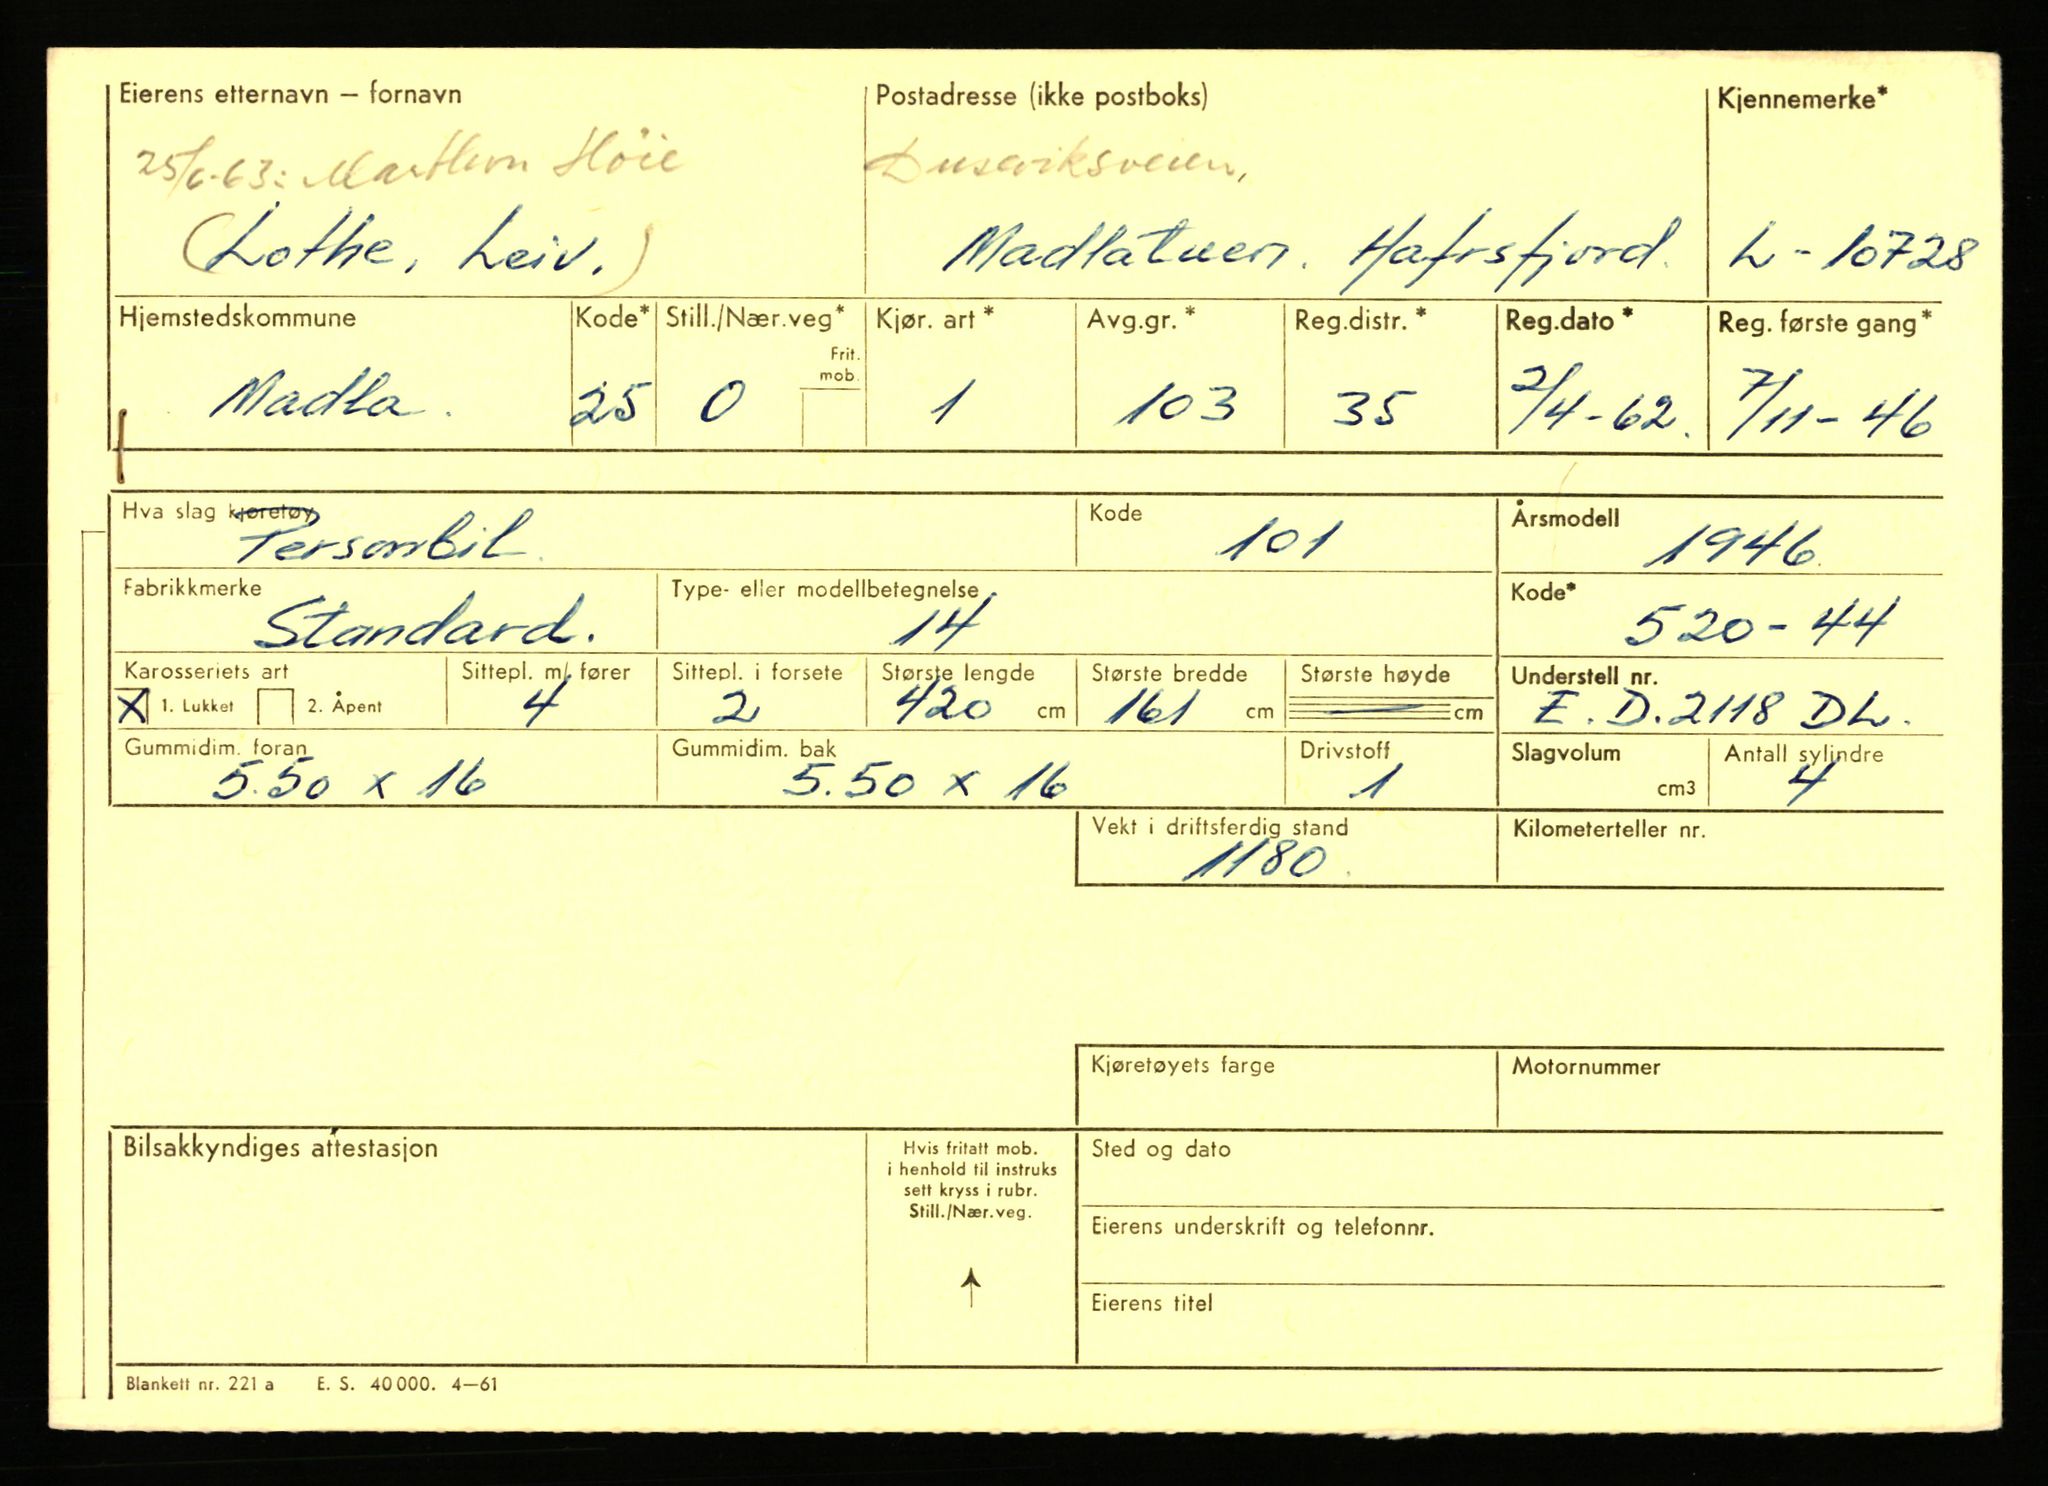 Eierens etternavn – fornavn Postadresse (ikke postboks) Kjennemerke*
25/6-63: Høie
(Lothe, Leiv.) Madlatuen. Hafrsfjord. L - 10728
Hjemstedskommune Kode* Still./Nær.veg* Kjør. art* Avg.gr.* Reg.distr.* Reg.dato* Reg. første gang*
Frit. mob.
Madla. 25 0 1 103 35 2/4-62. 7/11-46
Hva slag kjøretøy Kode Årsmodell
Personbil. 101 1946.
Fabrikkmerke Type- eller modellbetegnelse Kode*
Standard. 14 520-44
Karosseriets art Sittepl. m/ fører Sittepl. i forsete Største lengde Største bredde Største høyde Understell nr.
X 1. Lukket 2. Åpent 4 2 420 cm 161 cm — cm E.D.2118 DL.
Gummidim. foran Gummidim. bak Drivstoff Slagvolum Antall sylindre
5.50 x 16 5.50 x 16 1 cm3 4
Vekt i driftsferdig stand Kilometerteller nr.
1180.
Kjøretøyets farge Motornummer
Bilsakkyndiges attestasjon
Hvis fritatt mob.
i henhold til instruks
sett kryss i rubr.
Still./Nær.veg.
Sted og dato
Eierens underskrift og telefonnr.
Eierens titel
Blankett nr. 221 a E. S. 40 000. 4—61